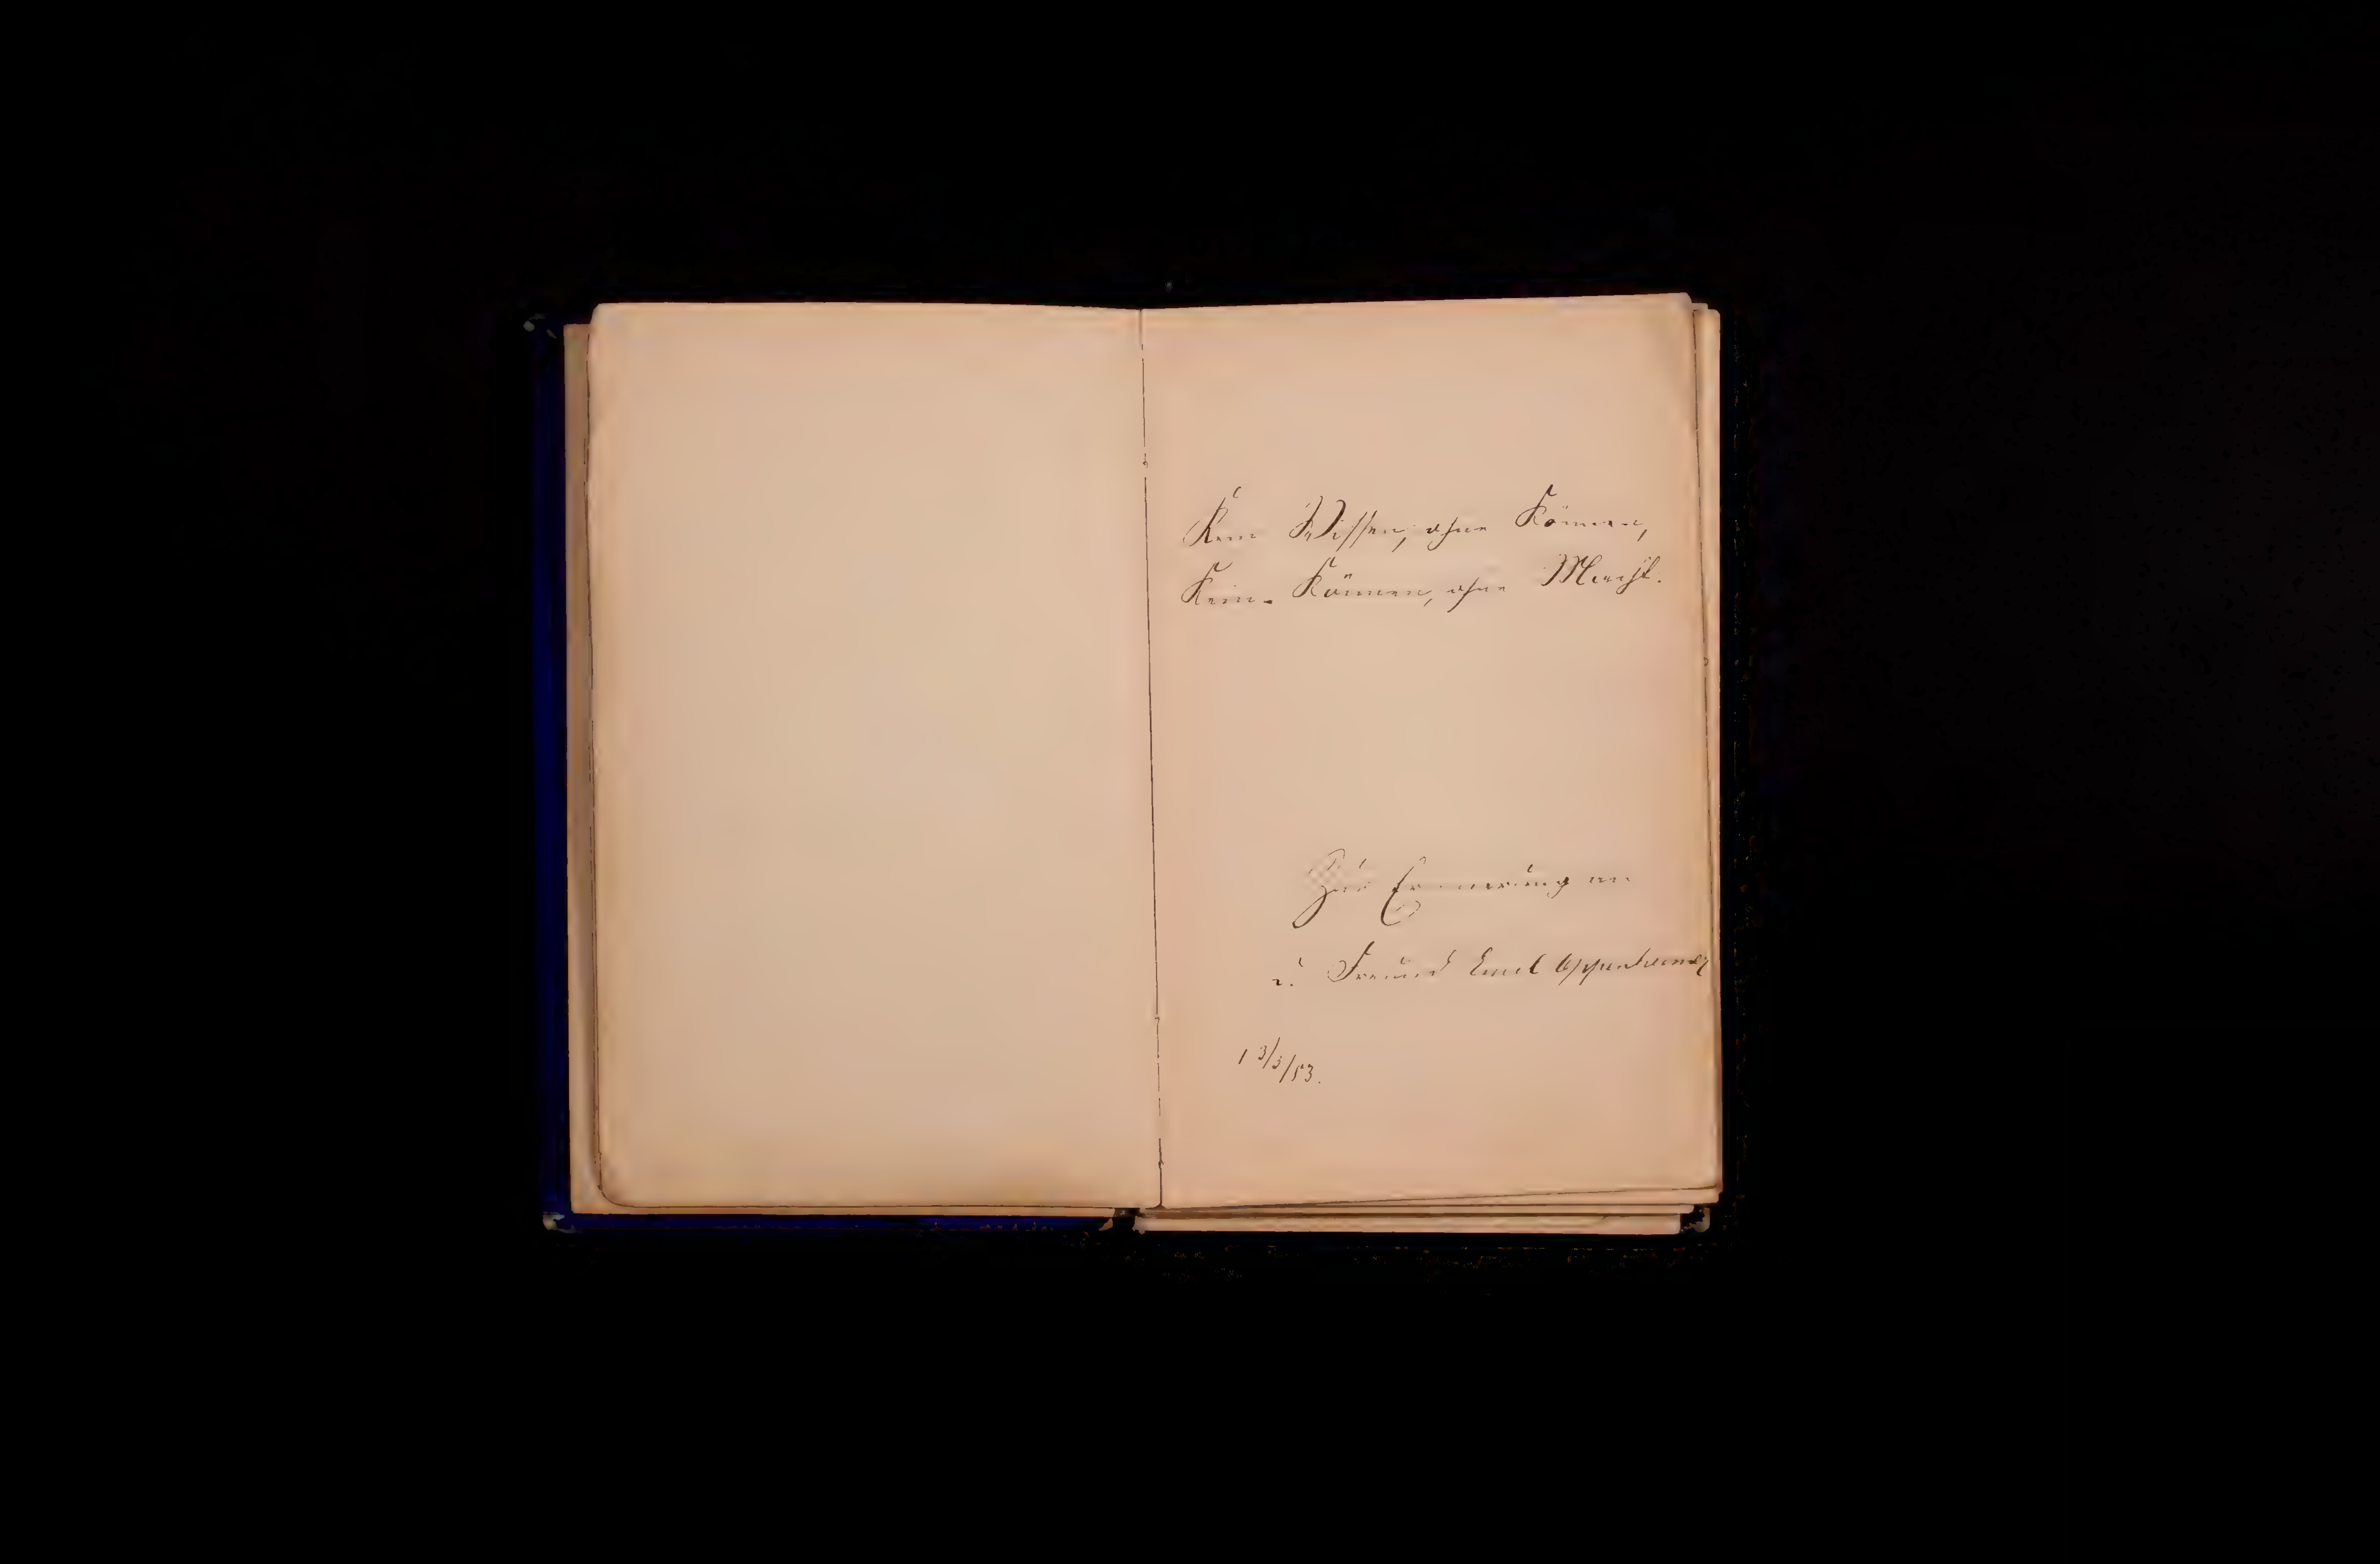 Kein Wissen, ohne Können,
Kein Können, ohne Macht.
Zur Erinnerung an
d. Freund Emil Oppenheimer
13/3/53.